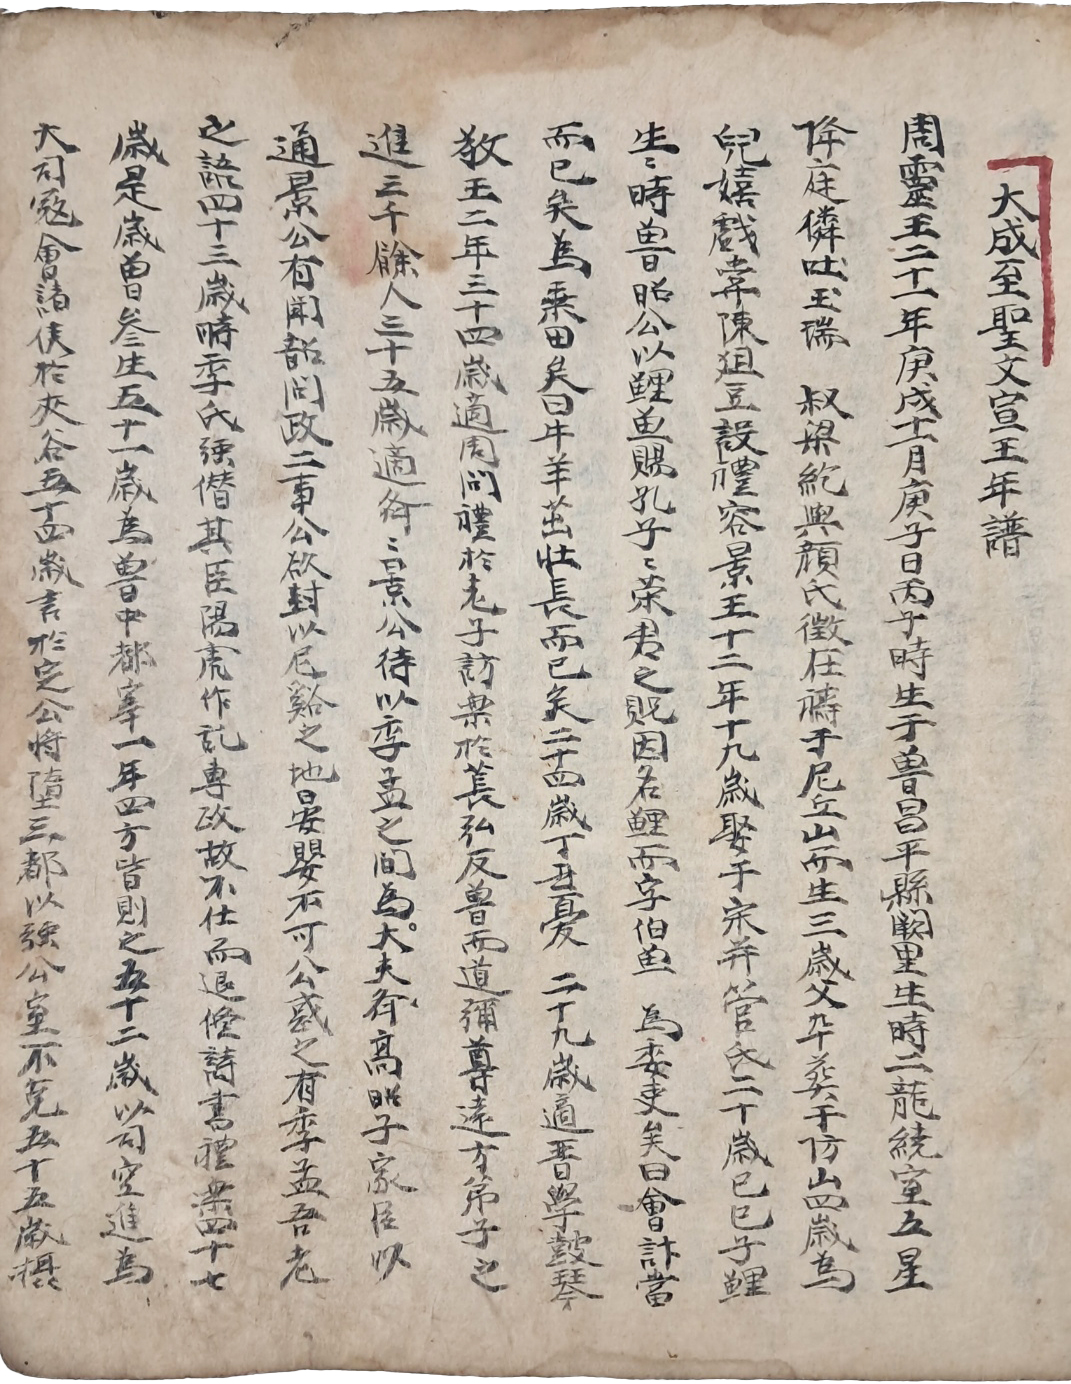 大成至聖文宣王年譜
周靈王二十一年庚戌十一月庚子日丙子時生于魯昌平縣闕里生時二龍繞室五星
降庭獜吐玉瑞 叔梁紇與顏氏徵在禱于尼丘山而生三歲父卒葬于防山四歲為
兒嬉戲常陳俎豆設禮容景王十二年十九歲娶于宋并管氏二十歲己巳子鯉
生〻時魯昭公以鯉魚賜孔子〻荣君之貺因名鯉而字伯魚 為委吏矣曰會計當
而已矣為乘田矣曰牛羊茁壮長而已矣二十四歲丁丑憂 二十九歲適晋學皷琴
敬王二年三十四歲適周問禮於老子訪樂於萇弘反魯而道彌尊遠方第子之
進三千餘人三十五歲適斉〻景公待以季孟之間為大夫斉高昭子家臣以
通景公有聞韶問政二事公欲封以尼谿之地晏嬰不可公惑之有季孟吾老
之語四十三歲時季氏强僣其臣陽虎作乱專政故不仕而退修詩書禮樂四十七
歲是歲曽參生五十一歲為魯中都宰一年四方皆則之五十二歲以司空進為
大司寇會諸侯於夾谷五十四歲言於定公将墮三都以强公室不克五十五歲攝